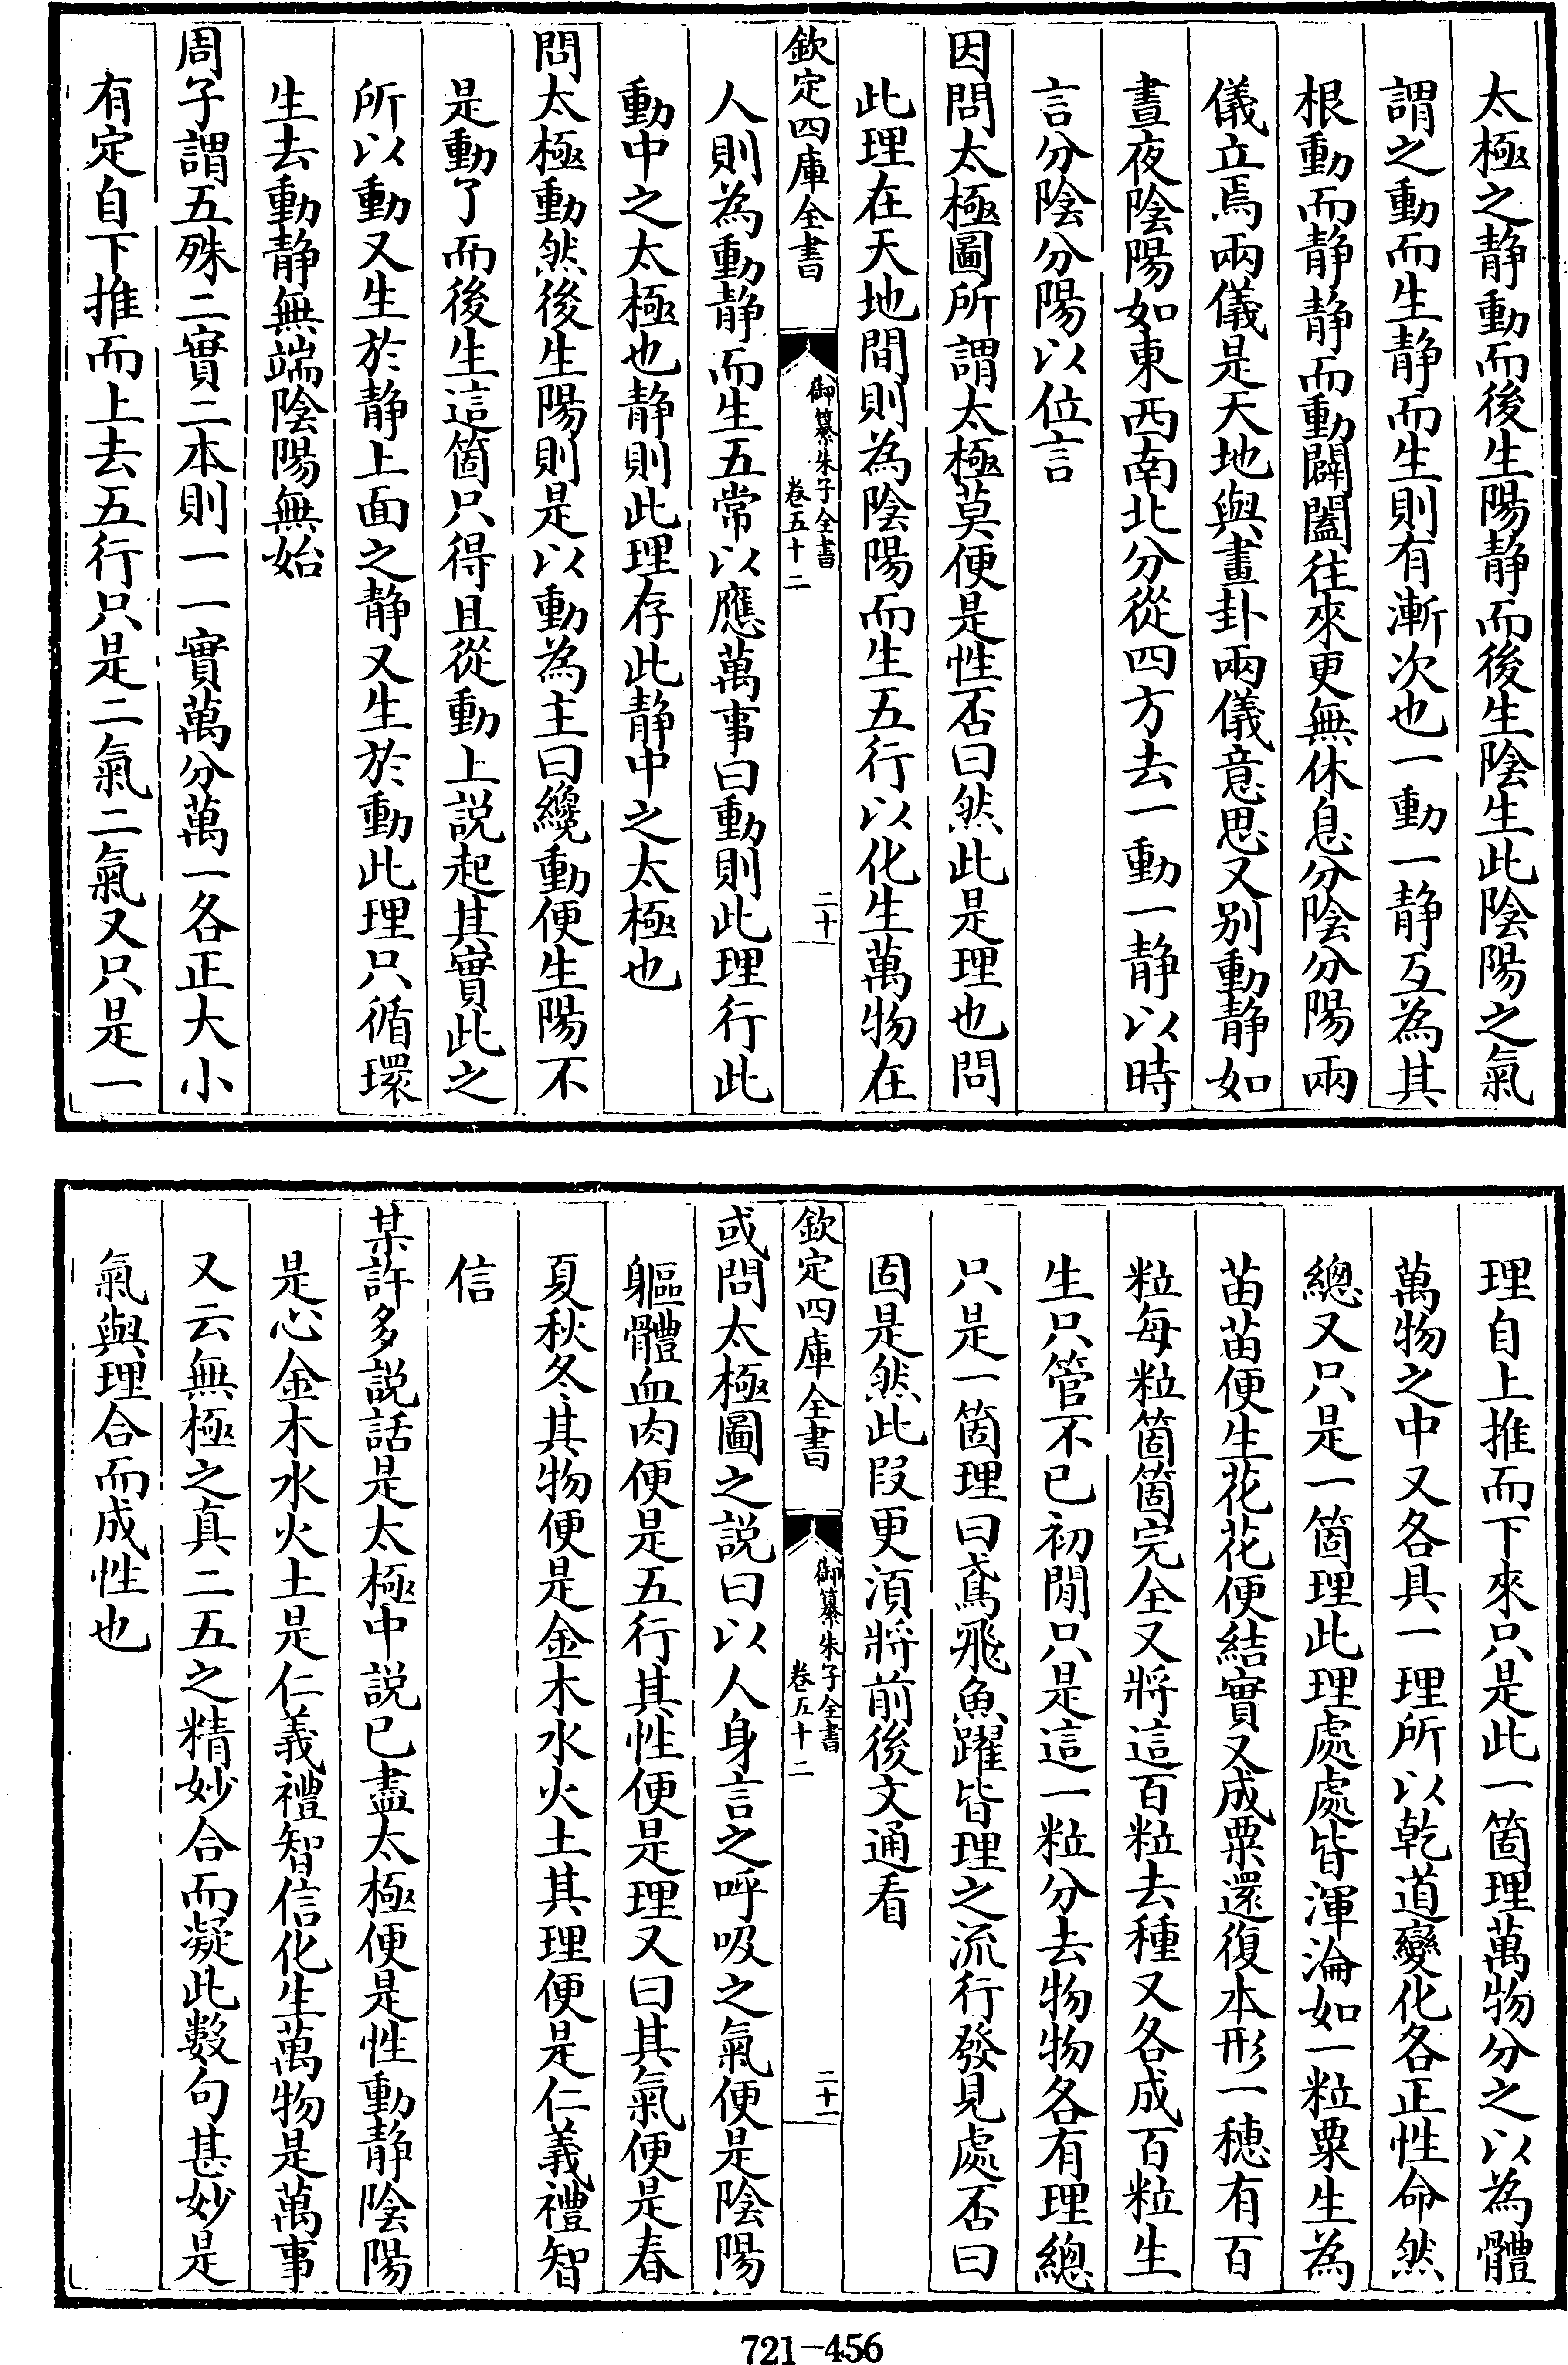 太極之静動而後生陽静而後生陰生此陰陽之氣
謂之動而生静而生則有漸次也一動一静互為其
根動而静静而動闢闔往來更無休息分陰分陽兩
儀立焉兩儀是天地與畫卦兩儀意思又别動静如
晝夜陰陽如東西南北分從四方去一動一静以時
言分陰分陽以位言
因問太極圖所謂太極莫便是性否曰然此是理也問
此理在天地間則為陰陽而生五行以化生萬物在
欽定四庫全書
御纂朱子全書
卷五十二
二十
人則為動静而生五常以應萬事曰動則此理行此
動中之太極也静則此理存此静中之太極也
問太極動然後生陽則是以動為主曰纔動便生陽不
是動了而後生這箇只得且從動上説起其實此之
所以動又生於静上面之静又生於動此理只循環
生去動静無端陰陽無始
周子謂五殊二實二本則一一實萬分萬一各正大小
有定自下推而上去五行只是二氣二氣又只是一
理自上推而下來只是此一箇理萬物分之以為體
萬物之中又各具一理所以乾道變化各正性命然
總又只是一箇理此理處處皆渾淪如一粒粟生為
苗苗便生花花便結實又成粟還復本形一穗有百
粒每粒箇箇完全又將這百粒去種又各成百粒生
生只管不已初閒只是這一粒分去物物各有理總
只是一箇理曰鳶飛魚躍皆理之流行發見處否曰
固是然此段更湏將前後文通看
欽定四庫全書
御纂朱子全書
卷五十二
二十一
或問太極圖之説曰以人身言之呼吸之氣便是陰陽
軀體血肉便是五行其性便是理又曰其氣便是春
夏秋冬其物便是金木水火土其理便是仁義禮智
信
某許多説話是太極中説已盡太極便是性動静陰陽
是心金木水火土是仁義禮智信化生萬物是萬事
又云無極之真二五之精妙合而凝此數句甚妙是
氣與理合而成性也
721-456